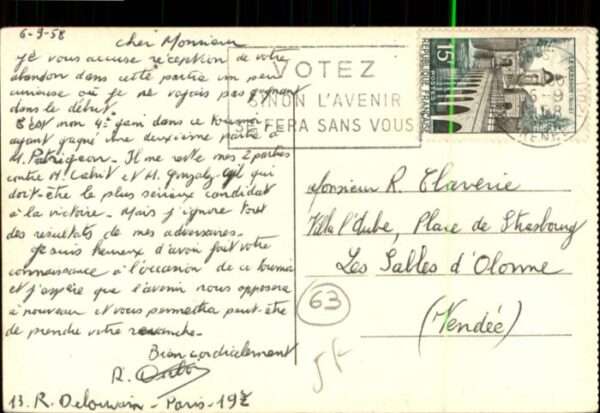 6-9-58
Cher Monsieur
Je vous accuse réception de votre
abandon dans cette partie un peu
curieuse où je ne voyais pas gagnant
dans le début.
C'est mon 4e gain dans ce tournoi
ayant gagné une deuxième partie à
M. Patrigeon. Il me reste mes 2 parties
contre M. et M. qui
doit être le plus sérieux candidat
à la victoire. Mais j'ignore tout
des résultats de mes adversaires.
Je suis heureux d'avoir fait votre
connaissance à l'occasion de ce tournoi
et j'espère que l'avenir nous opposera
à nouveau et vous permettra peut-être
de prendre votre revanche.
Bien cordialement
R.
13. R. Delouvain - Paris - 19e
VOTEZ
SINON L'AVENIR
SE FERA SANS VOUS
15F
REPUBLIQUE FRANÇAISE
Monsieur R. Claverie
Villa l'Aube, Place de Strasbourg
Les Sables d'Olonne
(Vendée)
63
5F